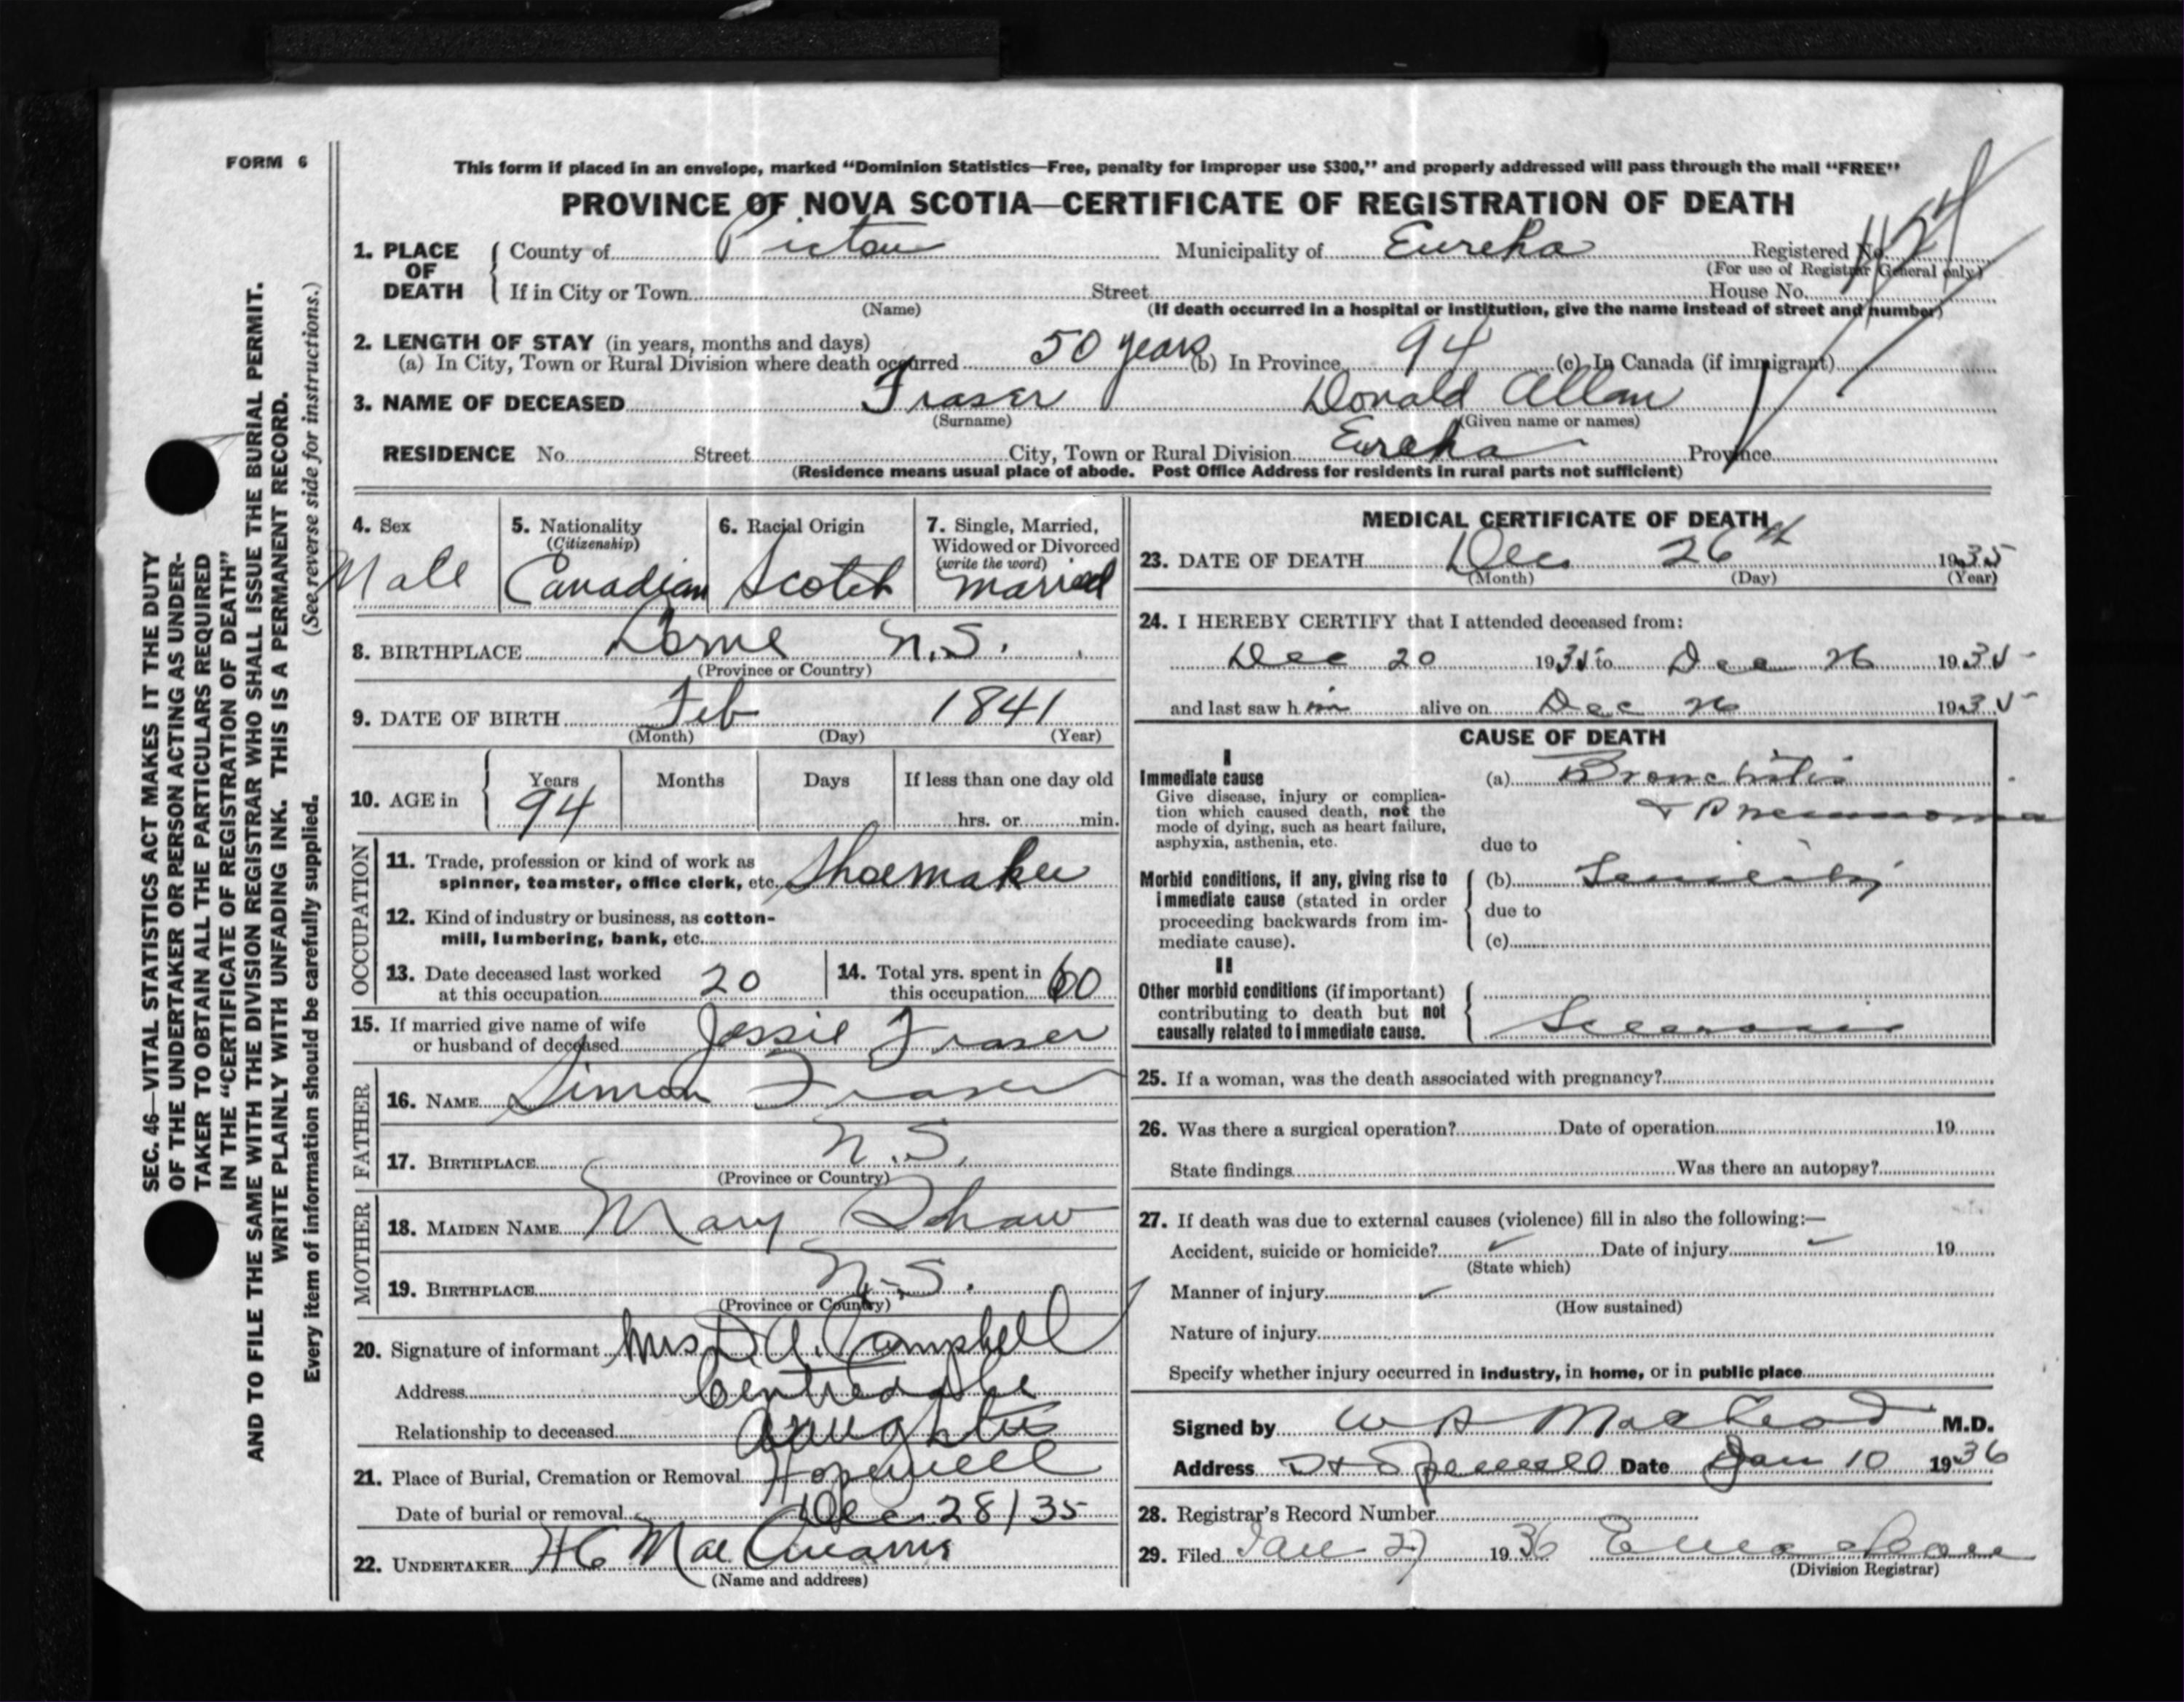 FORM 6
This form if placed in an envelope, marked “Dominion Statistics—Free, penalty for improper use $300,” and properly addressed will pass through the mail “FREE”
PROVINCE OF NOVA SCOTIA—CERTIFICATE OF REGISTRATION OF DEATH
1. PLACE OF DEATH { County of Pictou Municipality of Eureka Registered No.
(For use of Registrar General only)
If in City or Town Street House No.
(Name) (If death occurred in a hospital or institution, give the name instead of street and number)
2. LENGTH OF STAY (in years, months and days)
(a) In City, Town or Rural Division where death occurred 50 years (b) In Province 94 (c) In Canada (if immigrant)
3. NAME OF DECEASED Fraser Donald Allan
(Surname) (Given name or names)
RESIDENCE No. Street City, Town or Rural Division Eureka Province
(Residence means usual place of abode. Post Office Address for residents in rural parts not sufficient)
4. Sex
Male
5. Nationality
(Citizenship)
Canadian
6. Racial Origin
Scotch
7. Single, Married,
Widowed or Divorced
(write the word)
married
8. BIRTHPLACE Lorne N.S.
(Province or Country)
9. DATE OF BIRTH Feb 1841
(Month) (Day) (Year)
10. AGE in { Years Months Days If less than one day old
94 hrs. or min.
OCCUPATION
11. Trade, profession or kind of work as
spinner, teamster, office clerk, etc. Shoemaker
12. Kind of industry or business, as cotton-
mill, lumbering, bank, etc.
13. Date deceased last worked
at this occupation 20
14. Total yrs. spent in
this occupation 60
15. If married give name of wife
or husband of deceased Jessie Fraser
FATHER
16. NAME Simon Fraser
17. BIRTHPLACE N.S.
(Province or Country)
MOTHER
18. MAIDEN NAME Mary Shaw
19. BIRTHPLACE N.S.
(Province or Country)
20. Signature of informant Mrs D.A. Campbell
Address
Relationship to deceased Daughter
21. Place of Burial, Cremation or Removal Hopewell
Date of burial or removal Dec 28/35
22. UNDERTAKER
(Name and address)
MEDICAL CERTIFICATE OF DEATH
23. DATE OF DEATH Dec 26th 1935
(Month) (Day) (Year)
24. I HEREBY CERTIFY that I attended deceased from:
Dec 20 1935 to Dec 26 1935
and last saw him alive on Dec 26 1935
CAUSE OF DEATH
I
Immediate cause
Give disease, injury or complica-
tion which caused death, not the
mode of dying, such as heart failure,
asphyxia, asthenia, etc.
(a) Bronchitis
+ Pneumonia
due to
Morbid conditions, if any, giving rise to
immediate cause (stated in order
proceeding backwards from im-
mediate cause).
(b) Senility
due to
(c)
II
Other morbid conditions (if important)
contributing to death but not
causally related to immediate cause.
25. If a woman, was the death associated with pregnancy?
26. Was there a surgical operation? Date of operation 19
State findings Was there an autopsy?
27. If death was due to external causes (violence) fill in also the following:—
Accident, suicide or homicide? Date of injury 19
(State which)
Manner of injury
(How sustained)
Nature of injury
Specify whether injury occurred in industry, in home, or in public place
Signed by W A MacLeod M.D.
Address Date Jan 10 1936
28. Registrar’s Record Number
29. Filed Jan 27 1936
(Division Registrar)
SEC. 46—VITAL STATISTICS ACT MAKES IT THE DUTY
OF THE UNDERTAKER OR PERSON ACTING AS UNDER-
TAKER TO OBTAIN ALL THE PARTICULARS REQUIRED
IN THE “CERTIFICATE OF REGISTRATION OF DEATH”
AND TO FILE THE SAME WITH THE DIVISION REGISTRAR WHO SHALL ISSUE THE BURIAL PERMIT.
WRITE PLAINLY WITH UNFADING INK. THIS IS A PERMANENT RECORD.
Every item of information should be carefully supplied. (See reverse side for instructions.)